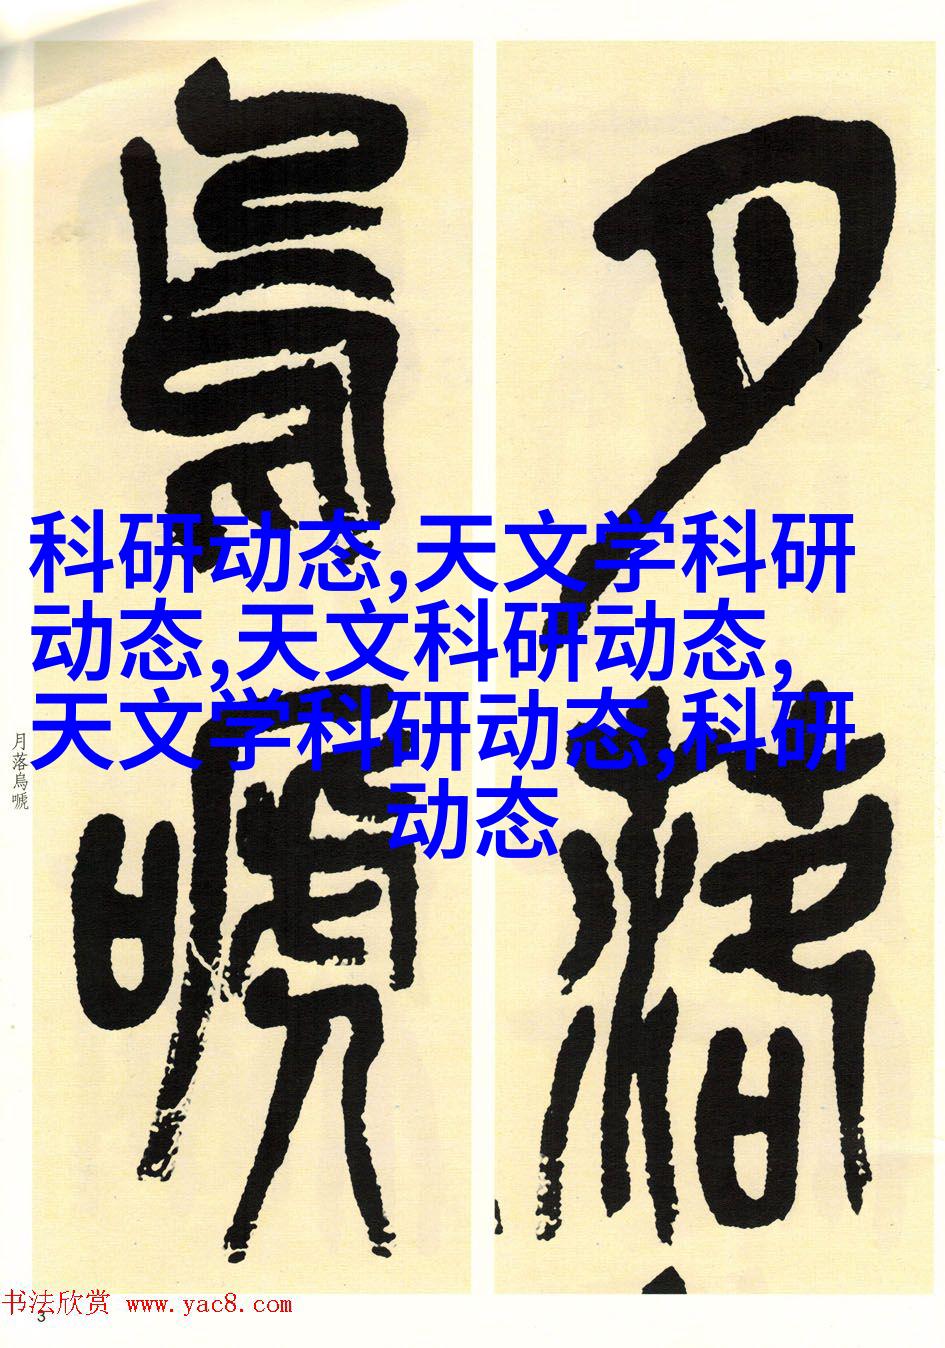 月落
烏嗁
科研动态,天文学科研
动态,天文科研动态,
天文学科研动态,科研
动态
月落烏嗁
书法欣赏 www.yac8.com
3